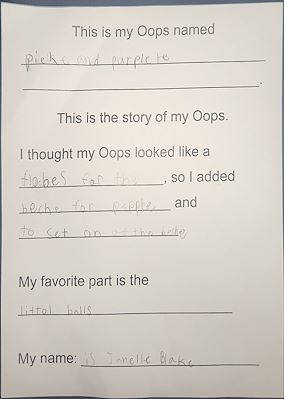 This is my Oops named
picke and purplete
.
This is the story of my Oops.
I thought my Oops looked like a
for the , so I added
beche for pepple and
to set on of the beches
My favorite part is the
littol balls
My name: is Janelle Blake